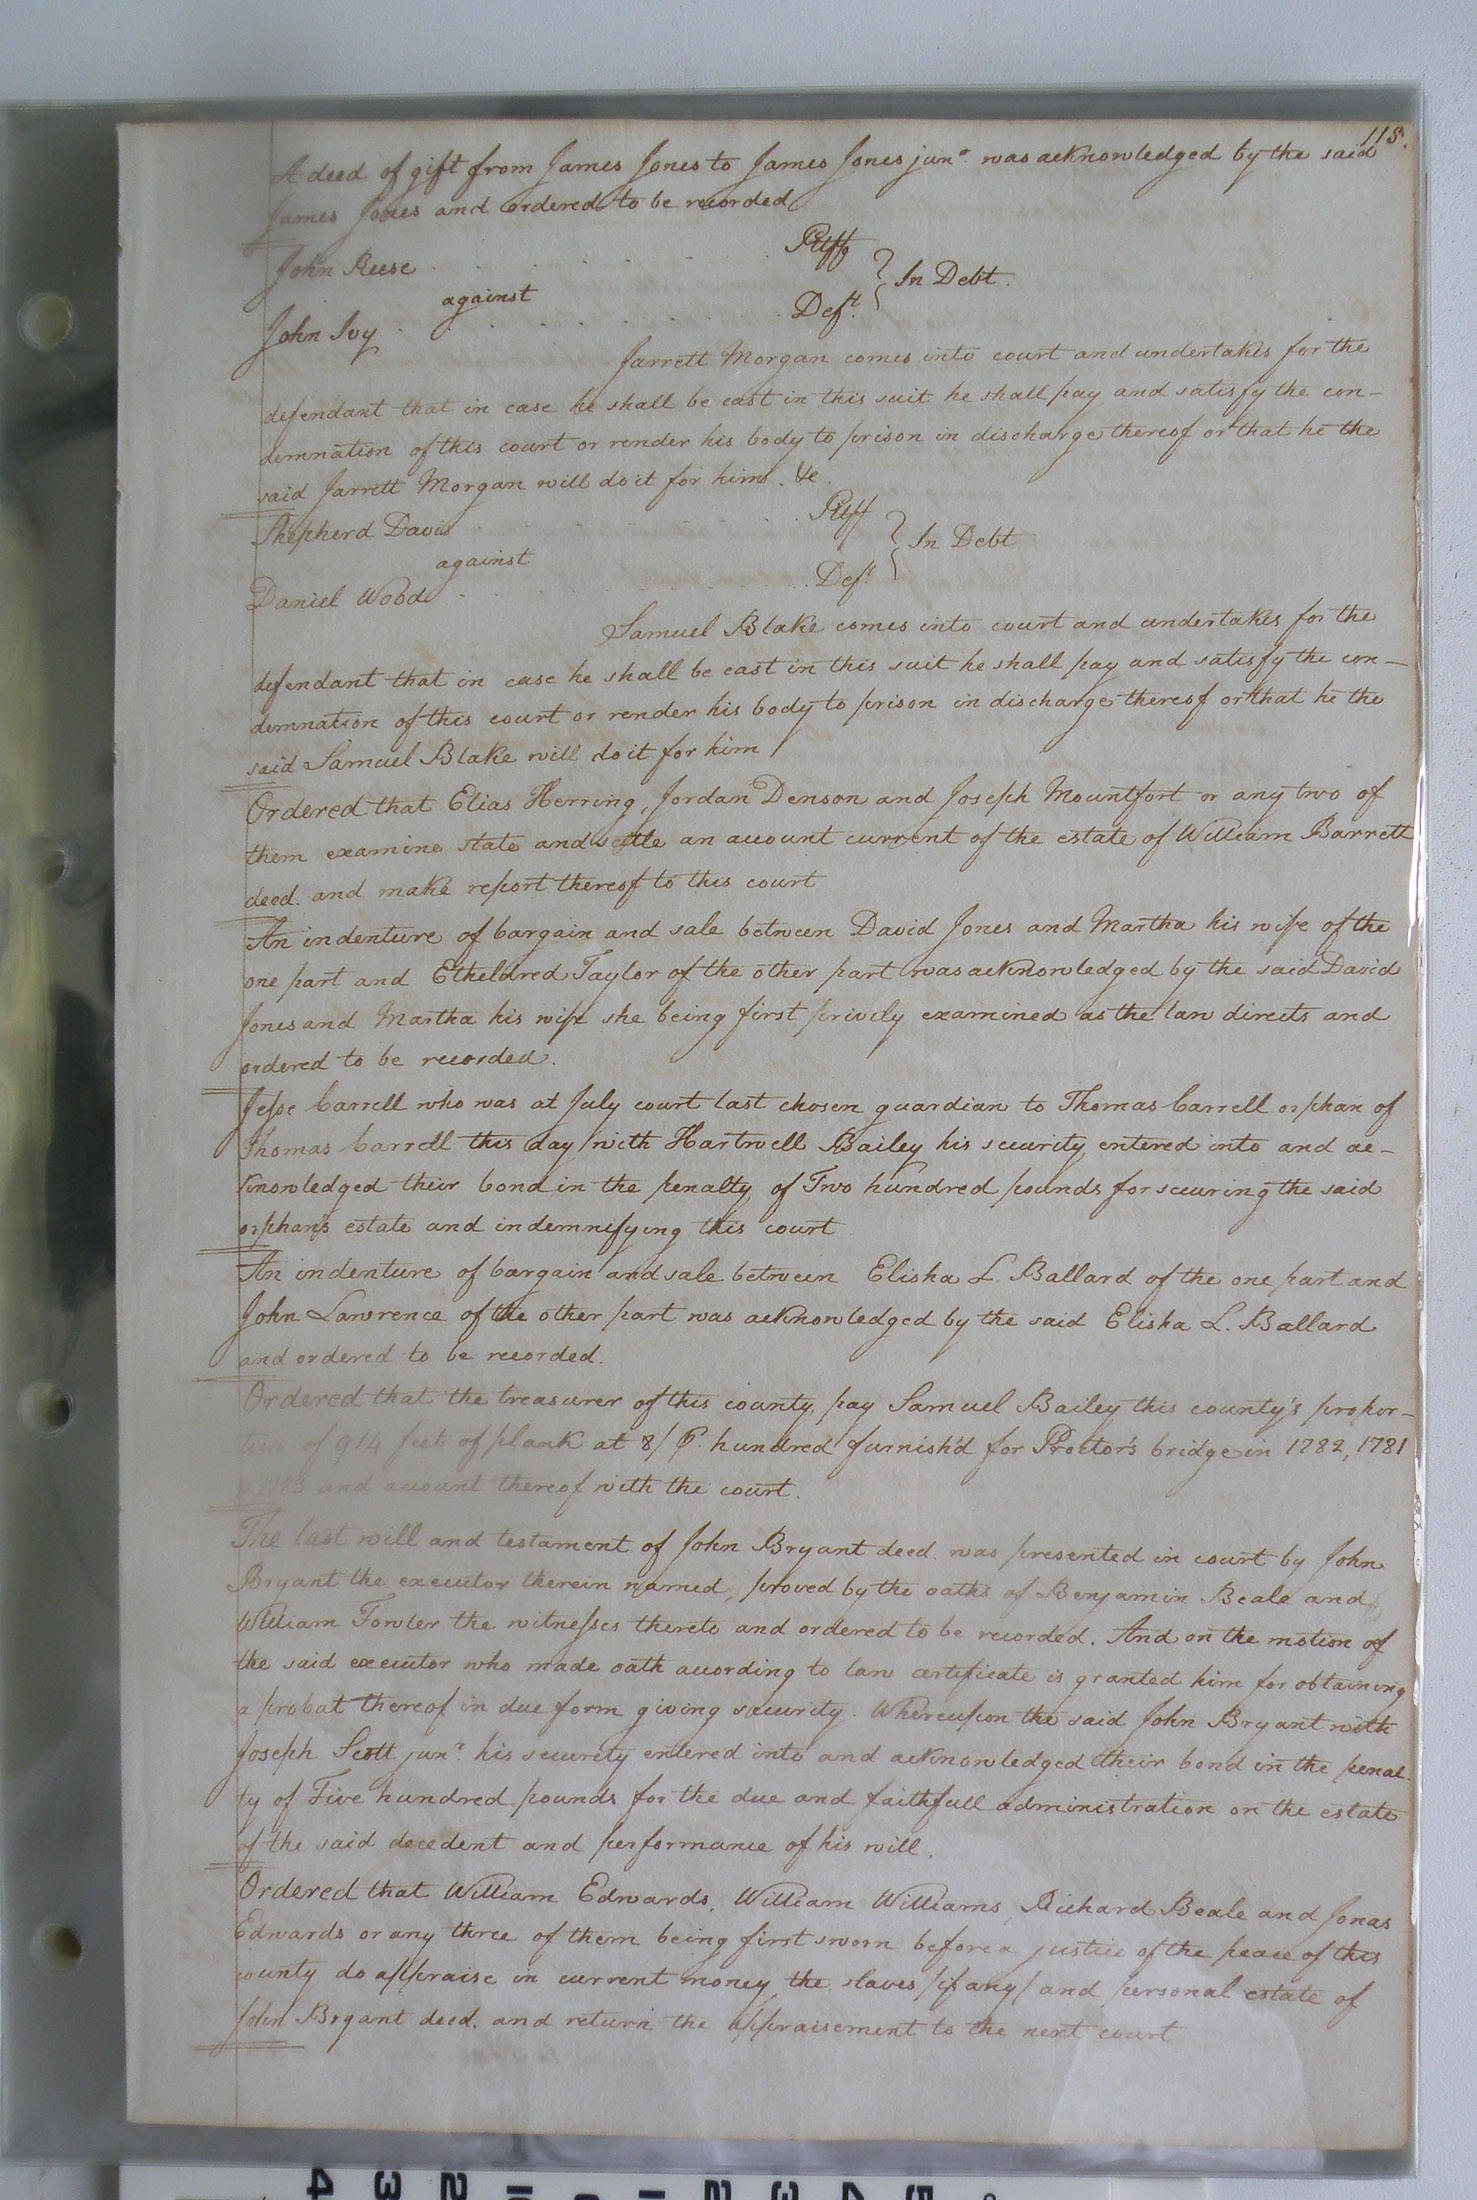 115.
A deed of gift from James Jones to James Jones junr. was acknowledged by the said
James Jones and ordered to be recorded
John Reese . . . . . . . Pltff
against } In Debt.
John Ivy . . . . . . . . Deft.
Jarrett Morgan comes into court and undertakes for the
defendant that in case he shall be cast in this suit he shall pay and satisfy the con-
demnation of this court or render his body to prison in discharge thereof or that he the
said Jarrett Morgan will do it for him. &c.
Shepherd Davis . . . . . . . Pltff
against } In Debt
Daniel Wood . . . . . . . . Deft.
Samuel Blake comes into court and undertakes for the
defendant that in case he shall be cast in this suit he shall pay and satisfy the con-
demnation of this court or render his body to prison in discharge thereof or that he the
said Samuel Blake will do it for him /
Ordered that Elias Herring, Jordan Denson and Joseph Mountfort or any two of
them examine state and settle an account current of the estate of William Barrett
deced. and make report thereof to this court
An indenture of bargain and sale between David Jones and Martha his wife of the
one part and Etheldred Taylor of the other part was acknowledged by the said David
Jones and Martha his wife she being first privily examined as the law directs and
ordered to be recorded.
Jesse Carrell who was at July court last chosen guardian to Thomas Carrell orphan of
Thomas Carrell this day with Hartwell Bailey his security entered into and ac-
knowledged their bond in the penalty of Two hundred pounds for securing the said
orphan's estate and indemnifying this court
An indenture of bargain and sale between Elisha L. Ballard of the one part and
John Lawrence of the other part was acknowledged by the said Elisha L. Ballard
and ordered to be recorded.
Ordered that the treasurer of this county pay Samuel Bailey this county's propor-
tion of 914 feet of plank at 8/ ₱. hundred furnish'd for Proctor's bridge in 1782, 1781
& 1783 and account thereof with the court.
The last will and testament of John Bryant deced. was presented in court by John
Bryant the executor therein named, proved by the oaths of Benjamin Beale and
William Fowler the witnesses thereto and ordered to be recorded. And on the motion of
the said executor who made oath according to law certificate is granted him for obtaining
a probat thereof in due form giving security. Whereupon the said John Bryant with
Joseph Scott junr. his security entered into and acknowledged their bond in the penal-
ty of Five hundred pounds for the due and faithfull administration on the estate
of the said decedent and performance of his will.
Ordered that William Edwards, William Williams, Richard Beale and Jonas
Edwards or any three of them being first sworn before a justice of the peace of this
county do appraise in current money the slaves /if any/ and personal estate of
John Bryant deced. and return the appraisement to the next court
4 3 2 1 1 2 3 4 5